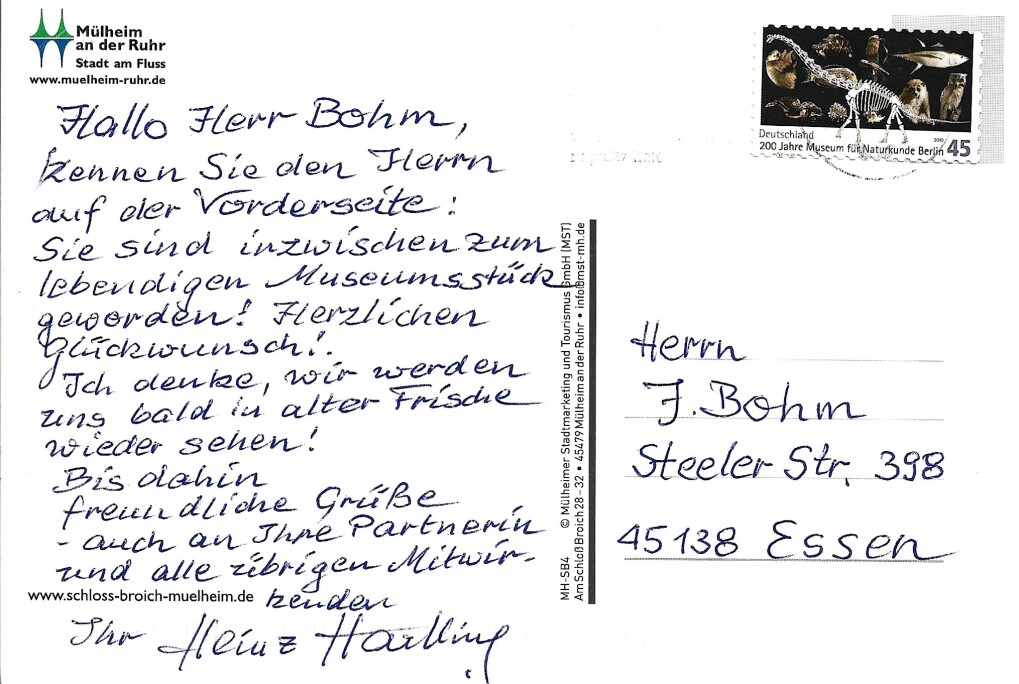 Mülheim
an der Ruhr
Stadt am Fluss
www.muelheim-ruhr.de
Hallo Herr Bohm,
kennen Sie den Herrn
auf der Vorderseite:
Sie sind inzwischen zum
lebendigen Museumsstück
geworden! Herzlichen
Glückwunsch!
Ich denke, wir werden
uns bald in alter Frische
wieder sehen!
Bis dahin
freundliche Grüße
- auch an Ihre Partnerin
und alle übrigen Mitwir-
kenden
www.schloss-broich-muelheim.de
Ihr Heinz
Deutschland
200 Jahre Museum für Naturkunde Berlin 45
2010
© Mülheimer Stadtmarketing und Tourismus GmbH (MST)
MH-SB4 Am Schloß Broich 28 – 32 • 45479 Mülheim an der Ruhr • info@mst-mh.de
Herrn
J. Bohm
Steeler Str. 398
45138 Essen